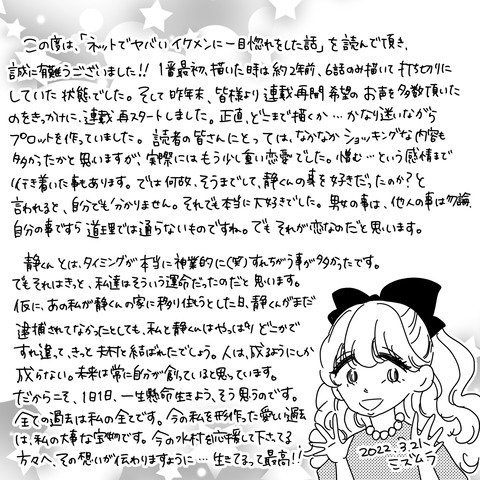 この度は、「ネットでヤバいイケメンに一目惚れをした話」を読んで頂き、
誠に有難うございました!! 1番最初、描いた時は約2年前、6話のみ描いて打ち切りに
していた状態でした。そして昨年末、皆様より連載再開希望のお声を多数頂いた
のをきっかけに、連載再スタートしました。正直、どこまで描くか…かなり迷いながら
プロットを作っていました。読者の皆さんにとっては、なかなかショッキングな内容も
多かったかと思いますが、実際にはもう少し重い恋愛でした。憎む…という感情まで
行き着いた事もあります。では何故、そうまでして、静くんの事を好きだったのか?と
言われると、自分でも分かりません。それでも本当に大好きでした。男女の事は、他人の事は勿論、
自分の事ですら道理では通らないものですね。でもそれが恋なのだと思います。
静くんとは、タイミングが本当に神業的に(笑)すれちがう事が多かったです。
でもそれはきっと、私達はそういう運命だったのだと思います。
仮に、あの私が静くんの家に移り住もうとした日、静くんがまだ
逮捕されてなかったとしても、私と静くんはやっぱりどこかで
すれ違って、きっと夫村と結ばれたでしょう。人は、成るようにしか
成らない。未来は常に自分が創っていると思っています。
だからこそ、1日1日、一生懸命生きよう、そう思うのです。
全ての過去は私の全てです。今の私を形作った愛しい過去
は、私の大事な宝物です。今の水村を応援して下さってる
方々へ、その想いが伝わりますように…生きてるって最高!!
2022.3.21
ミズムラ